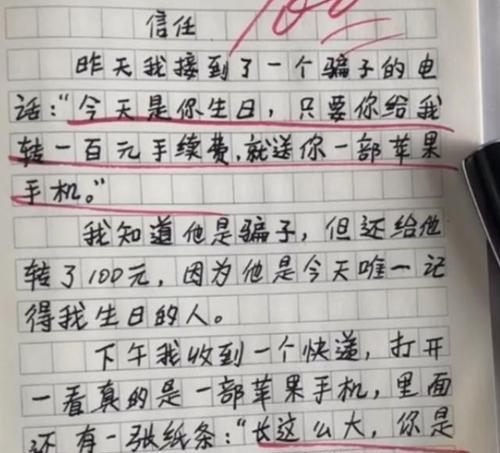 100
信任
昨天我接到了一个骗子的电
话:“今天是你生日,只要你给我
转一百元手续费,就送你一部苹果
手机。”
我知道他是骗子,但还给他
转了100元,因为他是今天唯一记
得我生日的人。
下午我收到一个快递,打开
一看真的是一部苹果手机,里面
还有一张纸条:“长这么大,你是